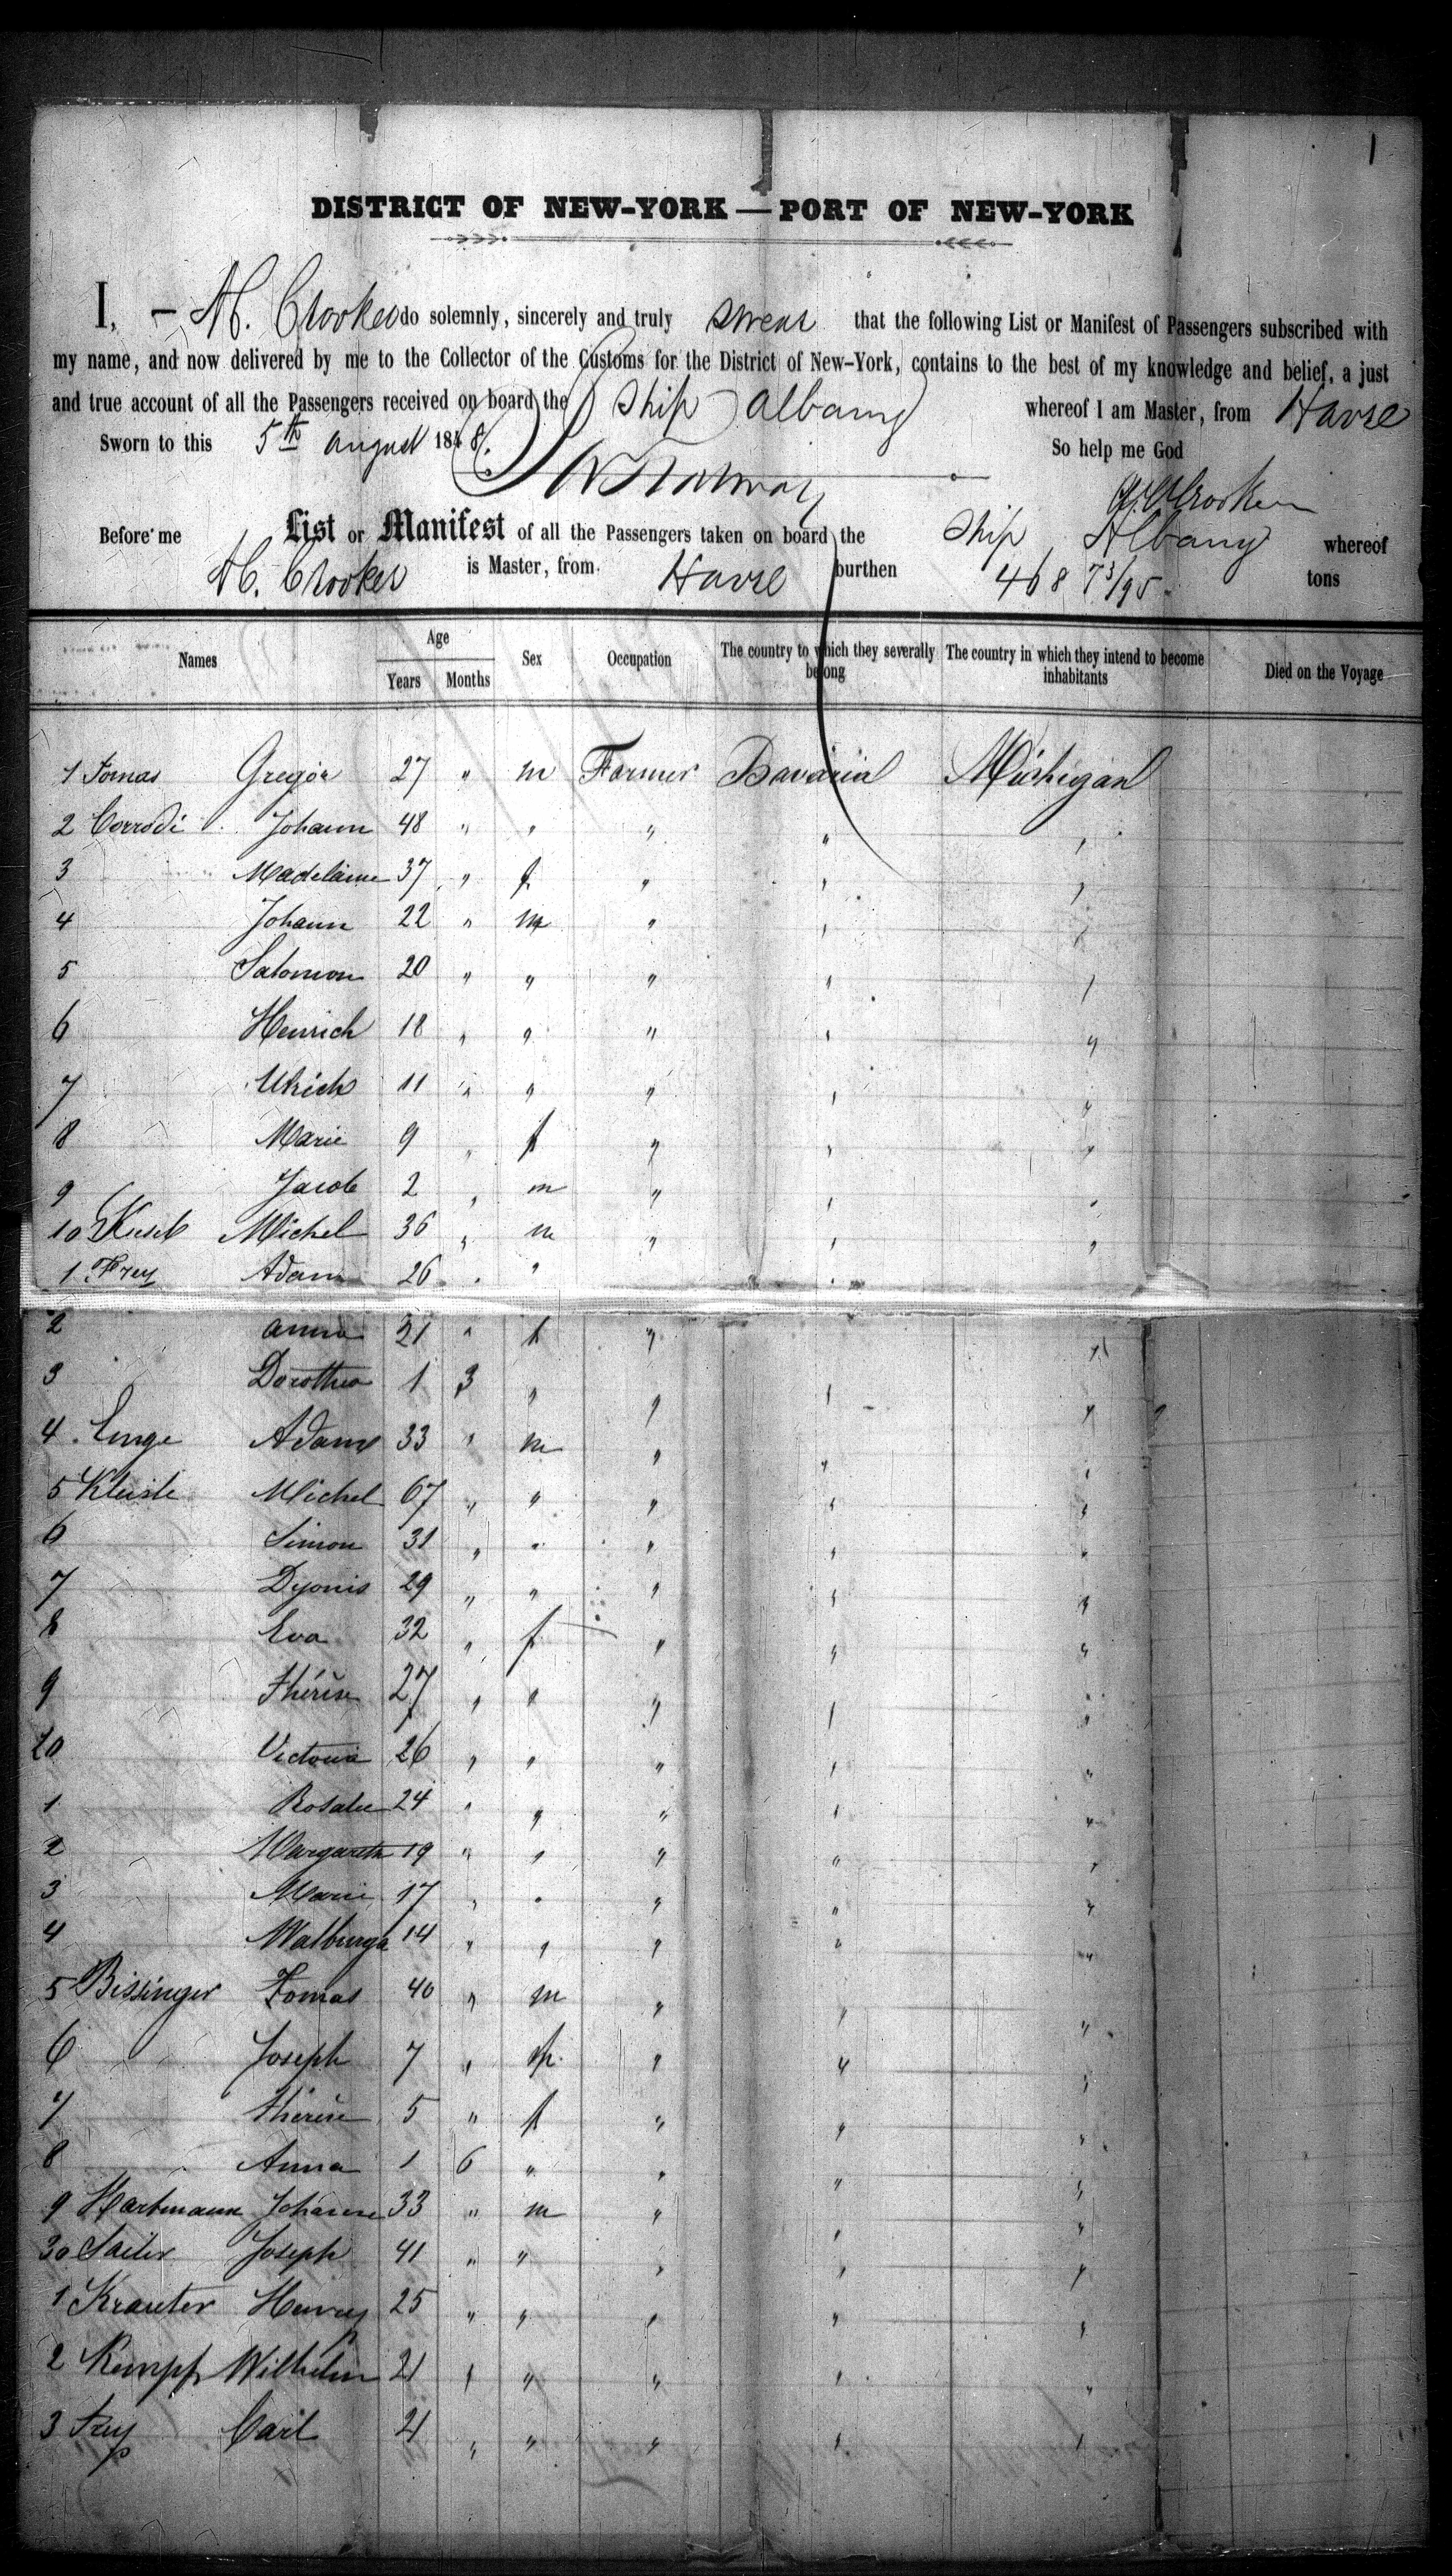 1
DISTRICT OF NEW-YORK — PORT OF NEW-YORK
I, — A. Crooker do solemnly, sincerely and truly swear that the following List or Manifest of Passengers subscribed with
my name, and now delivered by me to the Collector of the Customs for the District of New-York, contains to the best of my knowledge and belief, a just
and true account of all the Passengers received on board the Ship Albany whereof I am Master, from Havre
Sworn to this 5th august 1848. So help me God
A. Crooker
Before me List or Manifest of all the Passengers taken on board the Ship Albany whereof
A. Crooker is Master, from Havre burthen 468 73/95 tons
Names Age Years Months Sex Occupation The country to which they severally belong The country in which they intend to become inhabitants Died on the Voyage
1 Tomas Gregor 27 " m Farmer Bavaria Michigan
2 Corrodi Johann 48 " " " " "
3 Madelaine 37 " f " " "
4 Johann 22 " m " " "
5 Salomon 20 " " " " "
6 Henrich 18 " " " " "
7 Ulrich 11 " " " " "
8 Marie 9 " f " " "
9 Jacob 2 " m " " "
10 Michel 36 " m " " "
1 Frey Adam 26 " " "
2 Anna 21 " f " "
3 Dorothea 1 3 " " " "
4 Enge Adam 33 " m " " "
5 Kleisle Michel 67 " " " " "
6 Simon 31 " " " " "
7 Dyonis 29 " " " " "
8 Eva 32 " f " " "
9 Thérèse 27 " " " " "
20 Victoria 26 " " " " "
1 Rosalie 24 " " " " "
2 Margareth 19 " " " " "
3 Marie 17 " " " " "
4 Walburga 14 " " " " "
5 Bissinger Tomas 40 " m " " "
6 Joseph 7 " m " " "
7 Thérèse 5 " f " " "
8 Anna 1 6 " " " "
9 Hartmann Johann 33 " m " " "
30 Sailer Joseph 41 " " " " "
1 Krauter Henry 25 " " " " "
2 Kempf Wilhelm 21 " " " " "
3 Frey Carl 21 " " " " "